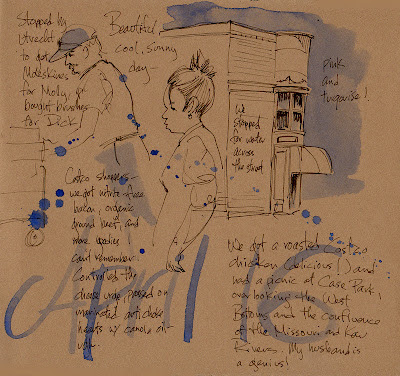 Stopped by
Utrecht
to get
Moleskines
for Molly,
bought brushes
for Dick
Beautiful,
cool, sunny
day -
pink
and
turquoise!
We
stopped
for water
across
the street
Costco shoppers -
we got nitrite-free
bacon, organic
ground beef, and
more goodies
can't remember.
Controlled the
urge, passed on
marinated artichoke
hearts w/ canola oil -
We got a roasted Costco
chicken (delicious!) and
had a picnic at Case Park,
overlooking the West
Bottoms and the confluence
of the Missouri and Kaw
Rivers. My husband is
a genius!
April